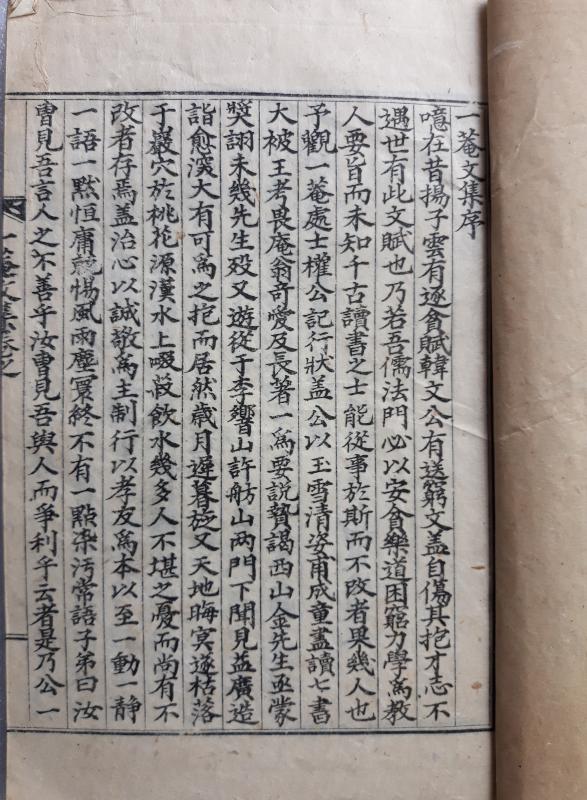 一菴文集序
噫在昔揚子雲有逐貧賦韓文公有送窮文盖自傷其抱才志不
遇世有此文賦也乃若吾儒法門必以安貧樂道困窮力學爲教
人要旨而未知千古讀書之士能從事於斯而不改者果幾人也
予觀一菴處士權公記行狀盖公以玉雪清姿甫成童盡讀七書
大被王考畏庵翁奇愛及長著一爲要說贄謁西山金先生亟蒙
奬詡未幾先生殁又遊從于李響山許舫山两門下聞見益廣造
詣愈深大有可爲之抱而居然歲月遲暮旋又天地晦冥遂枯落
于巖穴於桃花源漢水上啜菽飲水幾多人不堪之憂而尚有不
改者存焉盖治心以誠敬爲主制行以孝友爲本以至一動一靜
一語一黙恒庸兢惕風雨塵寰終不有一點染汚常語子弟曰汝
曹見吾言人之不善乎汝曹見吾與人而爭利乎云者是乃公一
一菴文集卷之